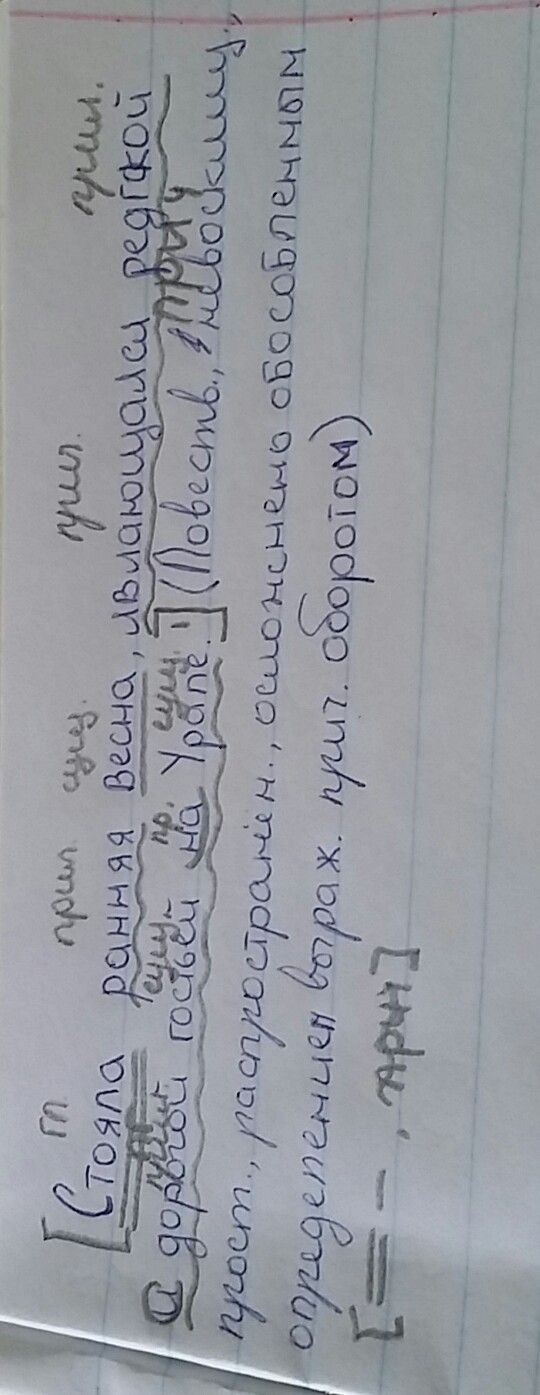 гл. прил. сущ. прич. прил.
[Стояла ранняя весна, являющаяся редкой
прил. сущ. пр. сущ. прич
и дорогой гостьей на Урале.] (Повеств., невосклиц.,
прост., распространён., осложнено обособленным
определением выраж. прич. оборотом)
[= – , прич]